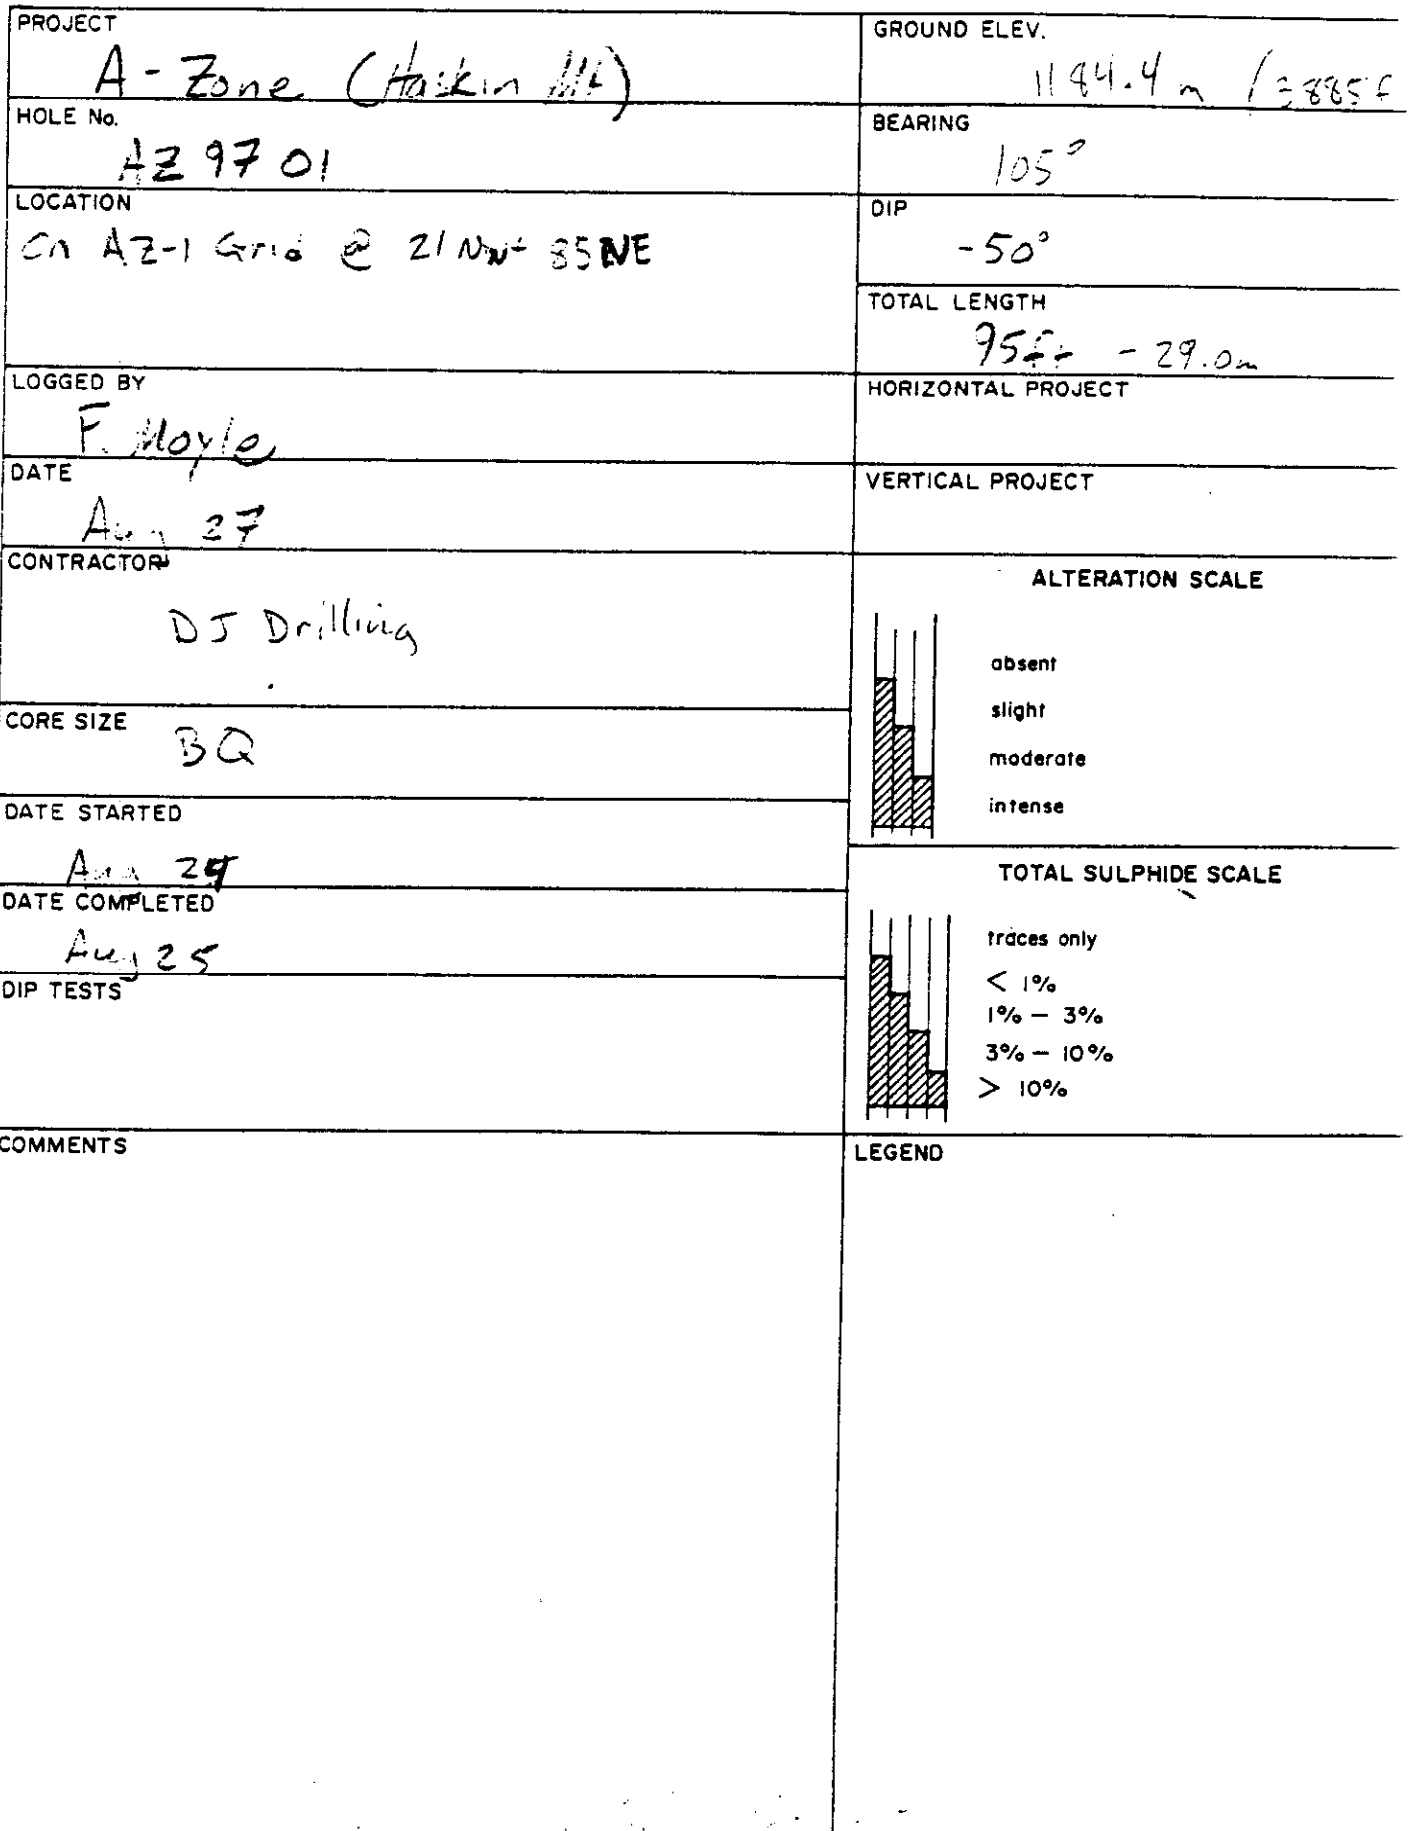 PROJECT
A - Zone (Haskin Mt)
HOLE No.
AZ 97 01
LOCATION
On AZ-1 Grid @ 21 NW + 85 NE
LOGGED BY
F. Moyle
DATE
Aug 27
CONTRACTOR
DJ Drilling
CORE SIZE
BQ
DATE STARTED
Aug 24
DATE COMPLETED
Aug 25
DIP TESTS
COMMENTS
GROUND ELEV.
1184.4 m / 3885 f
BEARING
105°
DIP
-50°
TOTAL LENGTH
95ft - 29.0m
HORIZONTAL PROJECT
VERTICAL PROJECT
ALTERATION SCALE
absent
slight
moderate
intense
TOTAL SULPHIDE SCALE
traces only
< 1%
1% – 3%
3% – 10%
> 10%
LEGEND